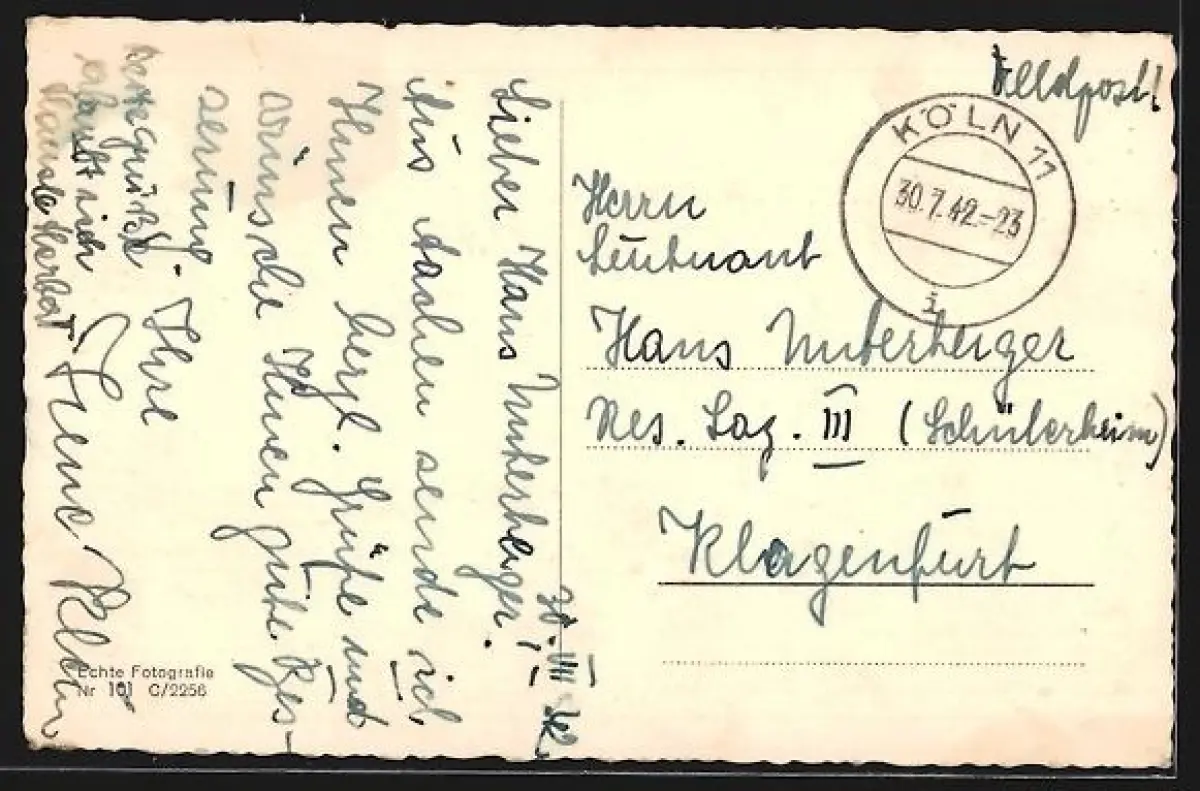 Feldpost!
KÖLN 11
30.7.42.-23
i
Herrn
Leutnant
Hans Unterberger
Res. Laz. III (Schülerheim)
Klagenfurt
Lieber Hans Unterberger!
Aus Aachen sende ich
Ihnen herzl. Grüße und
wünsche Ihnen gute Bes-
serung
Ihre
Klein
grüße
sich
Echte Fotografie
Nr 101 C/2256